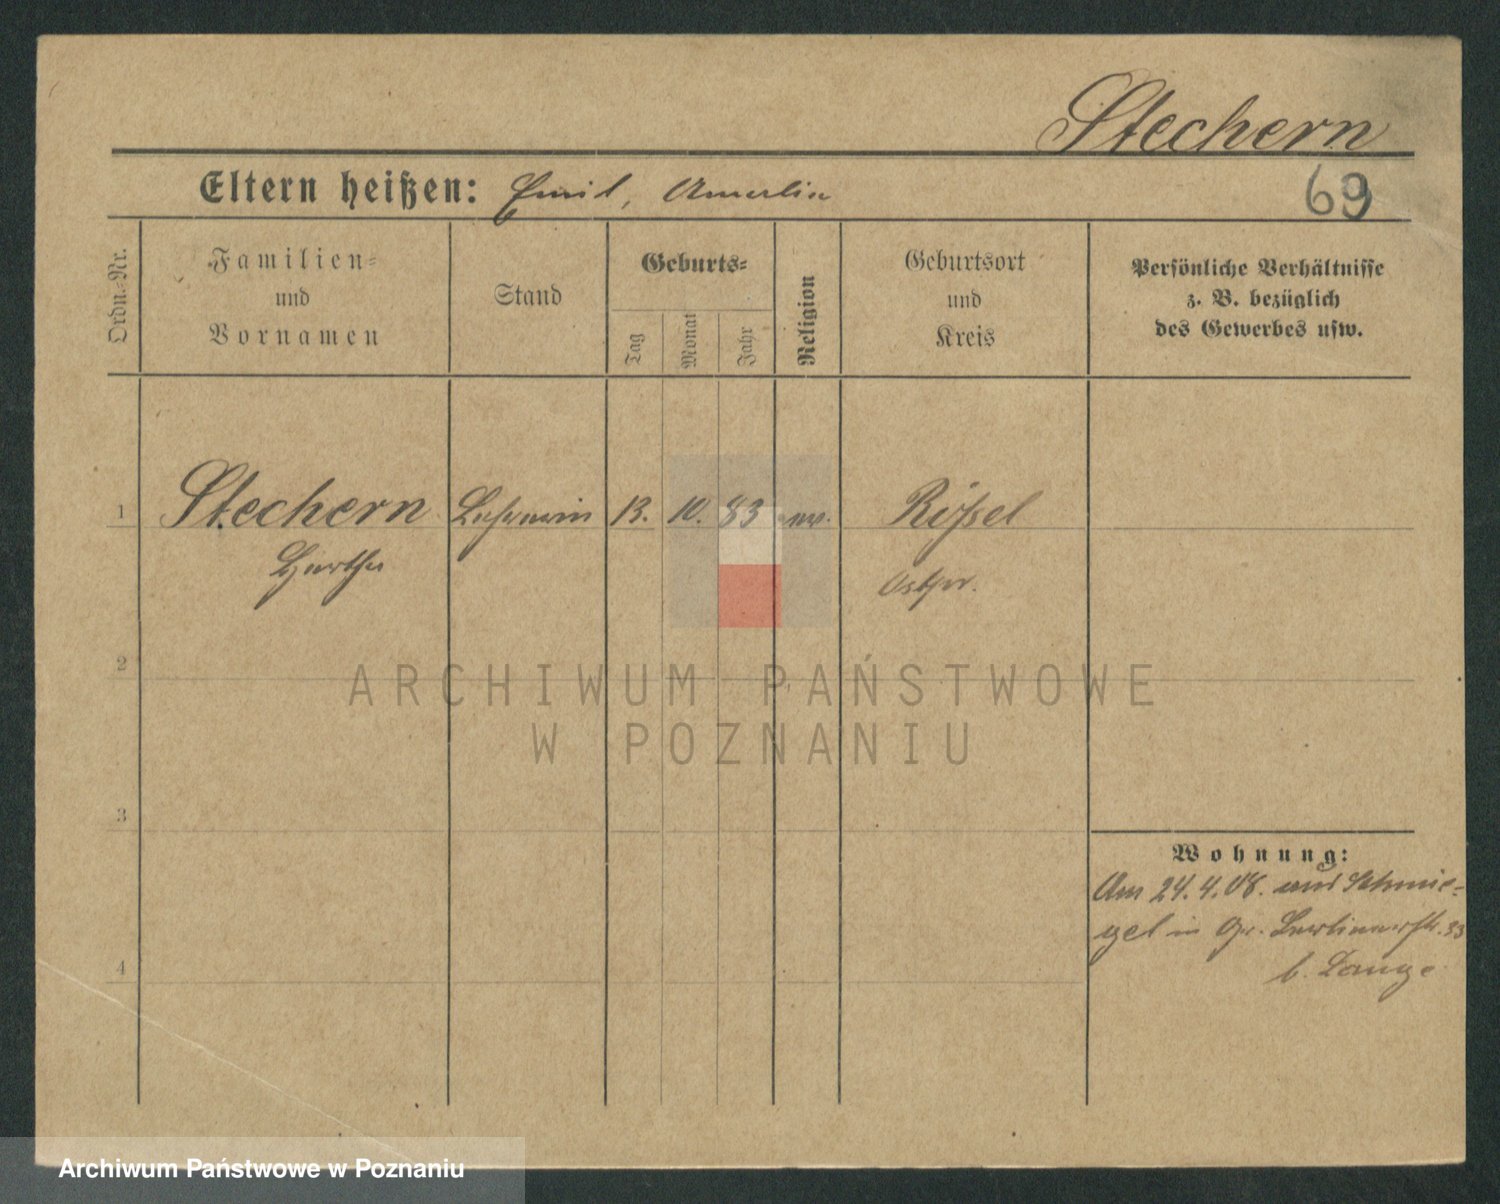 Stechern
Eltern heißen: Emil, Amalie
69
Ordn.-Nr.
Familien-
und
Vornamen
Stand
Geburts-
Tag
Monat
Jahr
Religion
Geburtsort
und
Kreis
Persönliche Verhältnisse
z. B. bezüglich
des Gewerbes usw.
1 Stechern Lehrerin 13. 10. 83 ev. Rößel
Hertha Ostpr.
2
ARCHIWUM PAŃSTWOWE
W POZNANIU
3
Wohnung:
Am 24.4.08. aus Schmie-
gel in Gr. Berlinerstr. 33
4
b. Lange
Archiwum Państwowe w Poznaniu